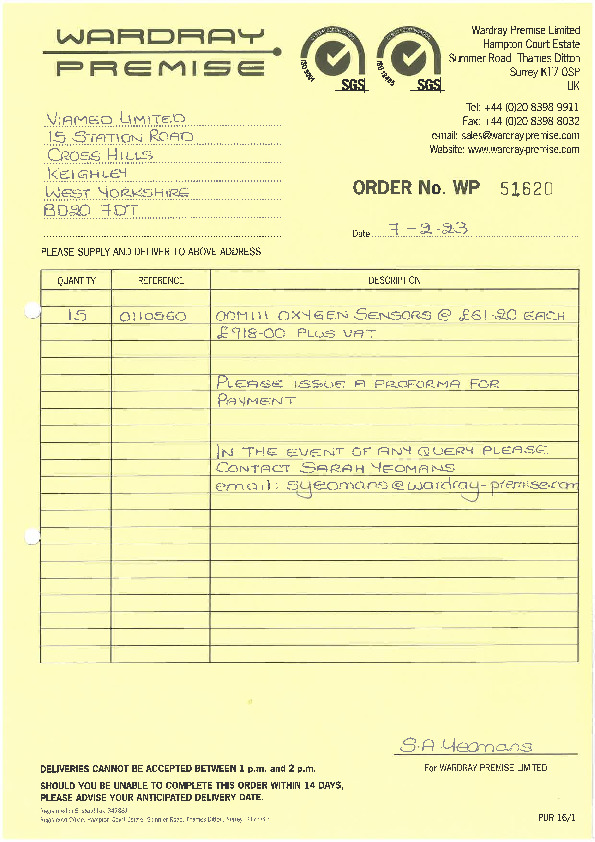 WARDRAY
PREMISE
ISO 9001
SGS
ISO 13485
SGS
Wardray Premise Limited
Hampton Court Estate
Summer Road, Thames Ditton
Surrey KT7 0SP
UK
Tel: +44 (0)20 8398 9911
Fax: +44 (0)20 8398 8032
e-mail: sales@wardray-premise.com
Website: www.wardray-premise.com
VIAMED LIMITED
15 STATION ROAD
CROSS HILLS
KEIGHLEY
WEST YORKSHIRE
BD20 7DT
ORDER No. WP 51620
Date 7-2-23
PLEASE SUPPLY AND DELIVER TO ABOVE ADDRESS
QUANTITY REFERENCE DESCRIPTION
15 0110560 OOM111 OXYGEN SENSORS @ £61-20 EACH
£918-00 PLUS VAT
PLEASE ISSUE A PROFORMA FOR
PAYMENT
IN THE EVENT OF ANY QUERY PLEASE
CONTACT SARAH YEOMANS
email: syeomans@wardray-premise.com
S.A Yeomans
For WARDRAY PREMISE LIMITED
DELIVERIES CANNOT BE ACCEPTED BETWEEN 1 p.m. and 2 p.m.
SHOULD YOU BE UNABLE TO COMPLETE THIS ORDER WITHIN 14 DAYS,
PLEASE ADVISE YOUR ANTICIPATED DELIVERY DATE.
Registered Office: Hampton Court Estate, Summer Road, Thames Ditton, Surrey
PUR 16/1